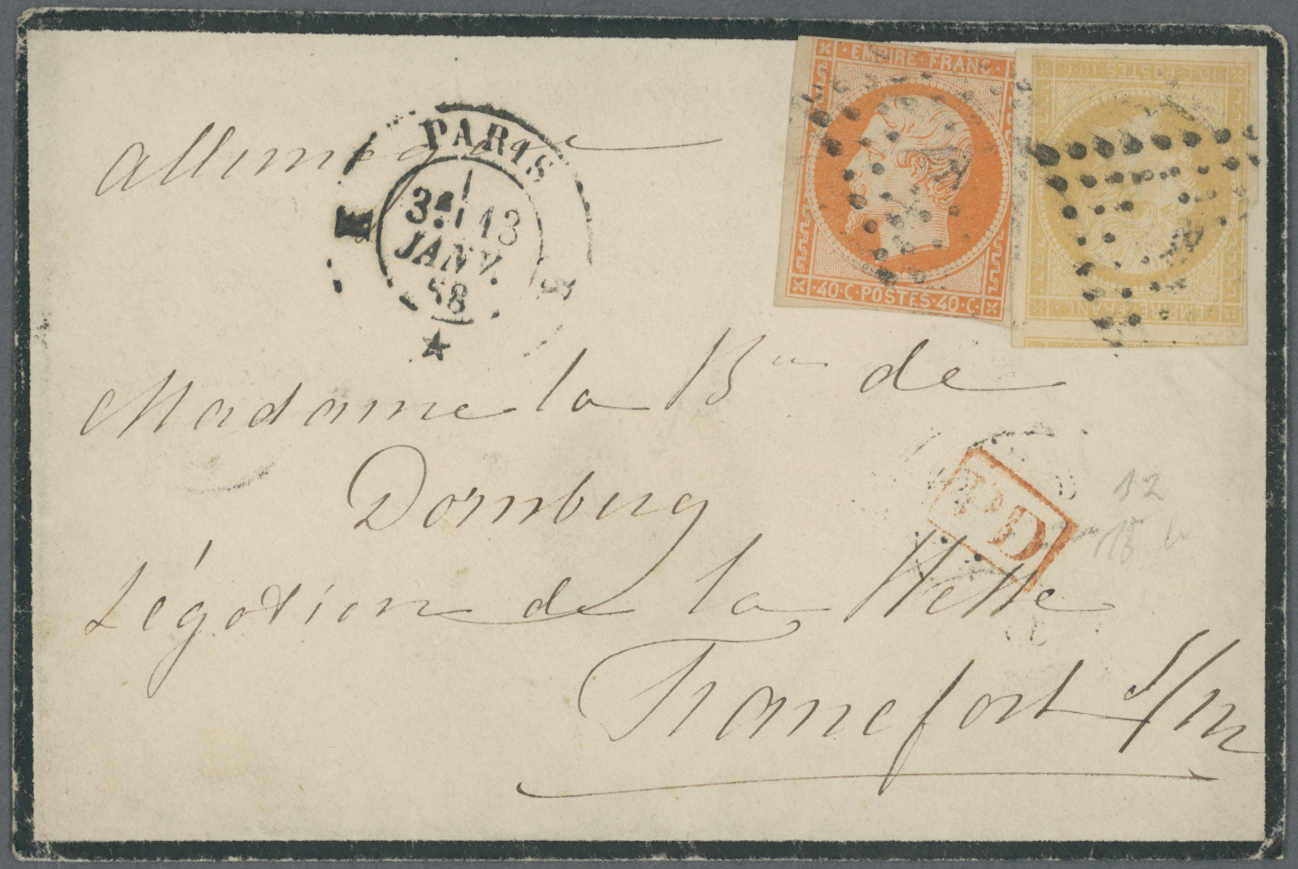 EMPIRE FRANC
40 C POSTES 40 C
Allemagne
PARIS
3E 13
JANV.
58
K
Madame la Bnne de
Dornberg
Légation de la Hesse
Francfort s/m
P.D.
12
15